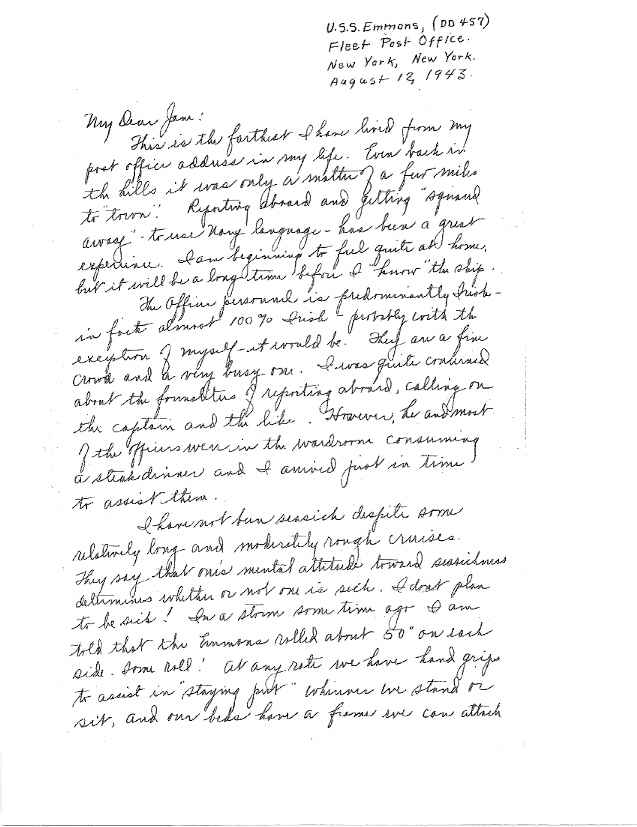 U.S.S. Emmons, (DD 457)
Fleet Post Office.
New York, New York.
August 12, 1943.
My Dear Jane:
This is the farthest I have lived from my
post office address in my life. Even back in
the hills it was only a matter of a few miles
to "town". Reporting aboard and getting "squared
away" - to use Navy language - has been a great
experience. I am beginning to feel quite at home,
but it will be a long time before I "know" the ship.
The Officer personnel is predominantly Irish -
in fact almost 100% Irish - probably with the
exception of myself - it would be. They are a fine
crowd and a very busy one. I was quite concerned
about the formalities of reporting aboard, calling on
the captain and the like. However, he and most
of the officers were in the wardroom consuming
a steak dinner and I arrived just in time
to assist them.
I have not been seasick despite some
relatively long and moderately rough cruises.
They say that one's mental attitude toward seasickness
determines whether or not one is sick. I don't plan
to be sick! In a storm some time ago I am
told that the Emmons rolled about 50° on each
side. Some roll! At any rate we have hand grips
to assist in "staying put" whenever we stand or
sit, and our beds have a frame we can attach